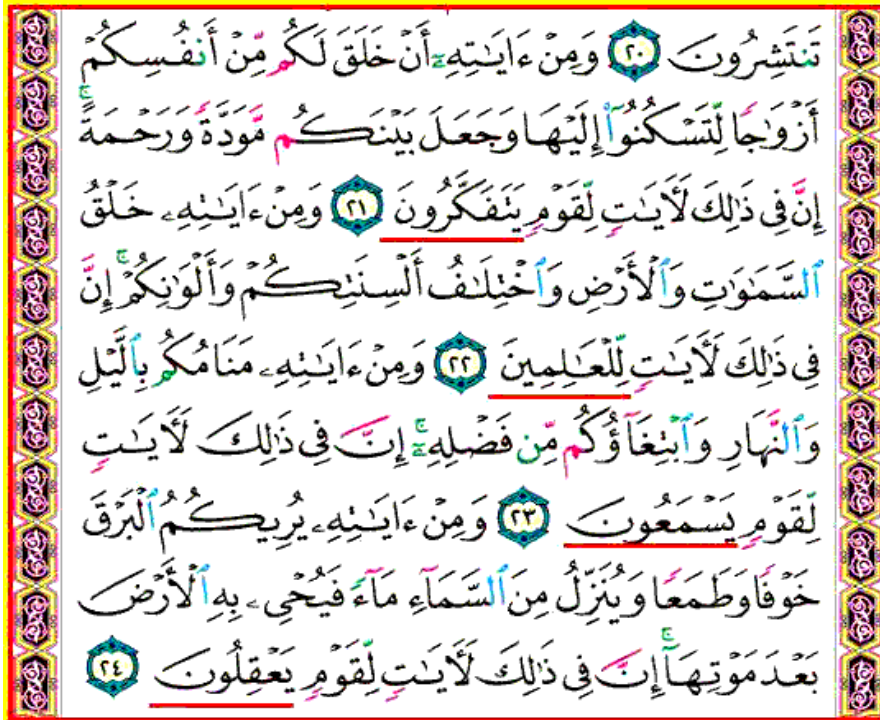 تَنتَشِرُونَ ٢٠ وَمِنْ ءَايَـٰتِهِۦٓ أَنْ خَلَقَ لَكُم مِّنْ أَنفُسِكُمْ
أَزْوَٰجًا لِّتَسْكُنُوٓا۟ إِلَيْهَا وَجَعَلَ بَيْنَكُم مَّوَدَّةً وَرَحْمَةً ۚ
إِنَّ فِى ذَٰلِكَ لَـَٔايَـٰتٍ لِّقَوْمٍ يَتَفَكَّرُونَ ٢١ وَمِنْ ءَايَـٰتِهِۦ خَلْقُ
ٱلسَّمَـٰوَٰتِ وَٱلْأَرْضِ وَٱخْتِلَـٰفُ أَلْسِنَتِكُمْ وَأَلْوَٰنِكُمْ ۚ إِنَّ
فِى ذَٰلِكَ لَـَٔايَـٰتٍ لِّلْعَـٰلِمِينَ ٢٢ وَمِنْ ءَايَـٰتِهِۦ مَنَامُكُم بِٱلَّيْلِ
وَٱلنَّهَارِ وَٱبْتِغَآؤُكُم مِّن فَضْلِهِۦٓ ۚ إِنَّ فِى ذَٰلِكَ لَـَٔايَـٰتٍ
لِّقَوْمٍ يَسْمَعُونَ ٢٣ وَمِنْ ءَايَـٰتِهِۦ يُرِيكُمُ ٱلْبَرْقَ
خَوْفًا وَطَمَعًا وَيُنَزِّلُ مِنَ ٱلسَّمَآءِ مَآءً فَيُحْىِۦ بِهِ ٱلْأَرْضَ
بَعْدَ مَوْتِهَآ ۚ إِنَّ فِى ذَٰلِكَ لَـَٔايَـٰتٍ لِّقَوْمٍ يَعْقِلُونَ ٢٤